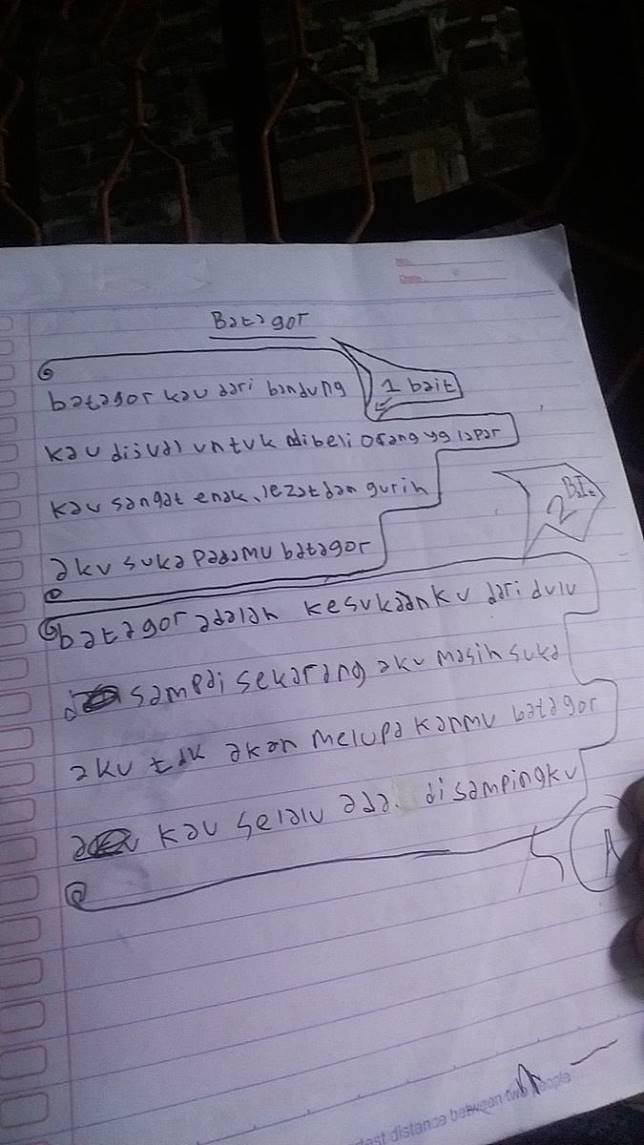 No.
Date
Batagor
batagor kau dari bandung
1 bait
kau dijual untuk dibeli orang yg lapar
kau sangat enak, lezat dan gurih
2 Bait
aku suka padamu batagor
batagor adalah kesukaanku dari dulu
sampai sekarang aku masih suka
aku tdk akan melupakanmu batagor
kau selalu ada disampingku
A
distance between two people